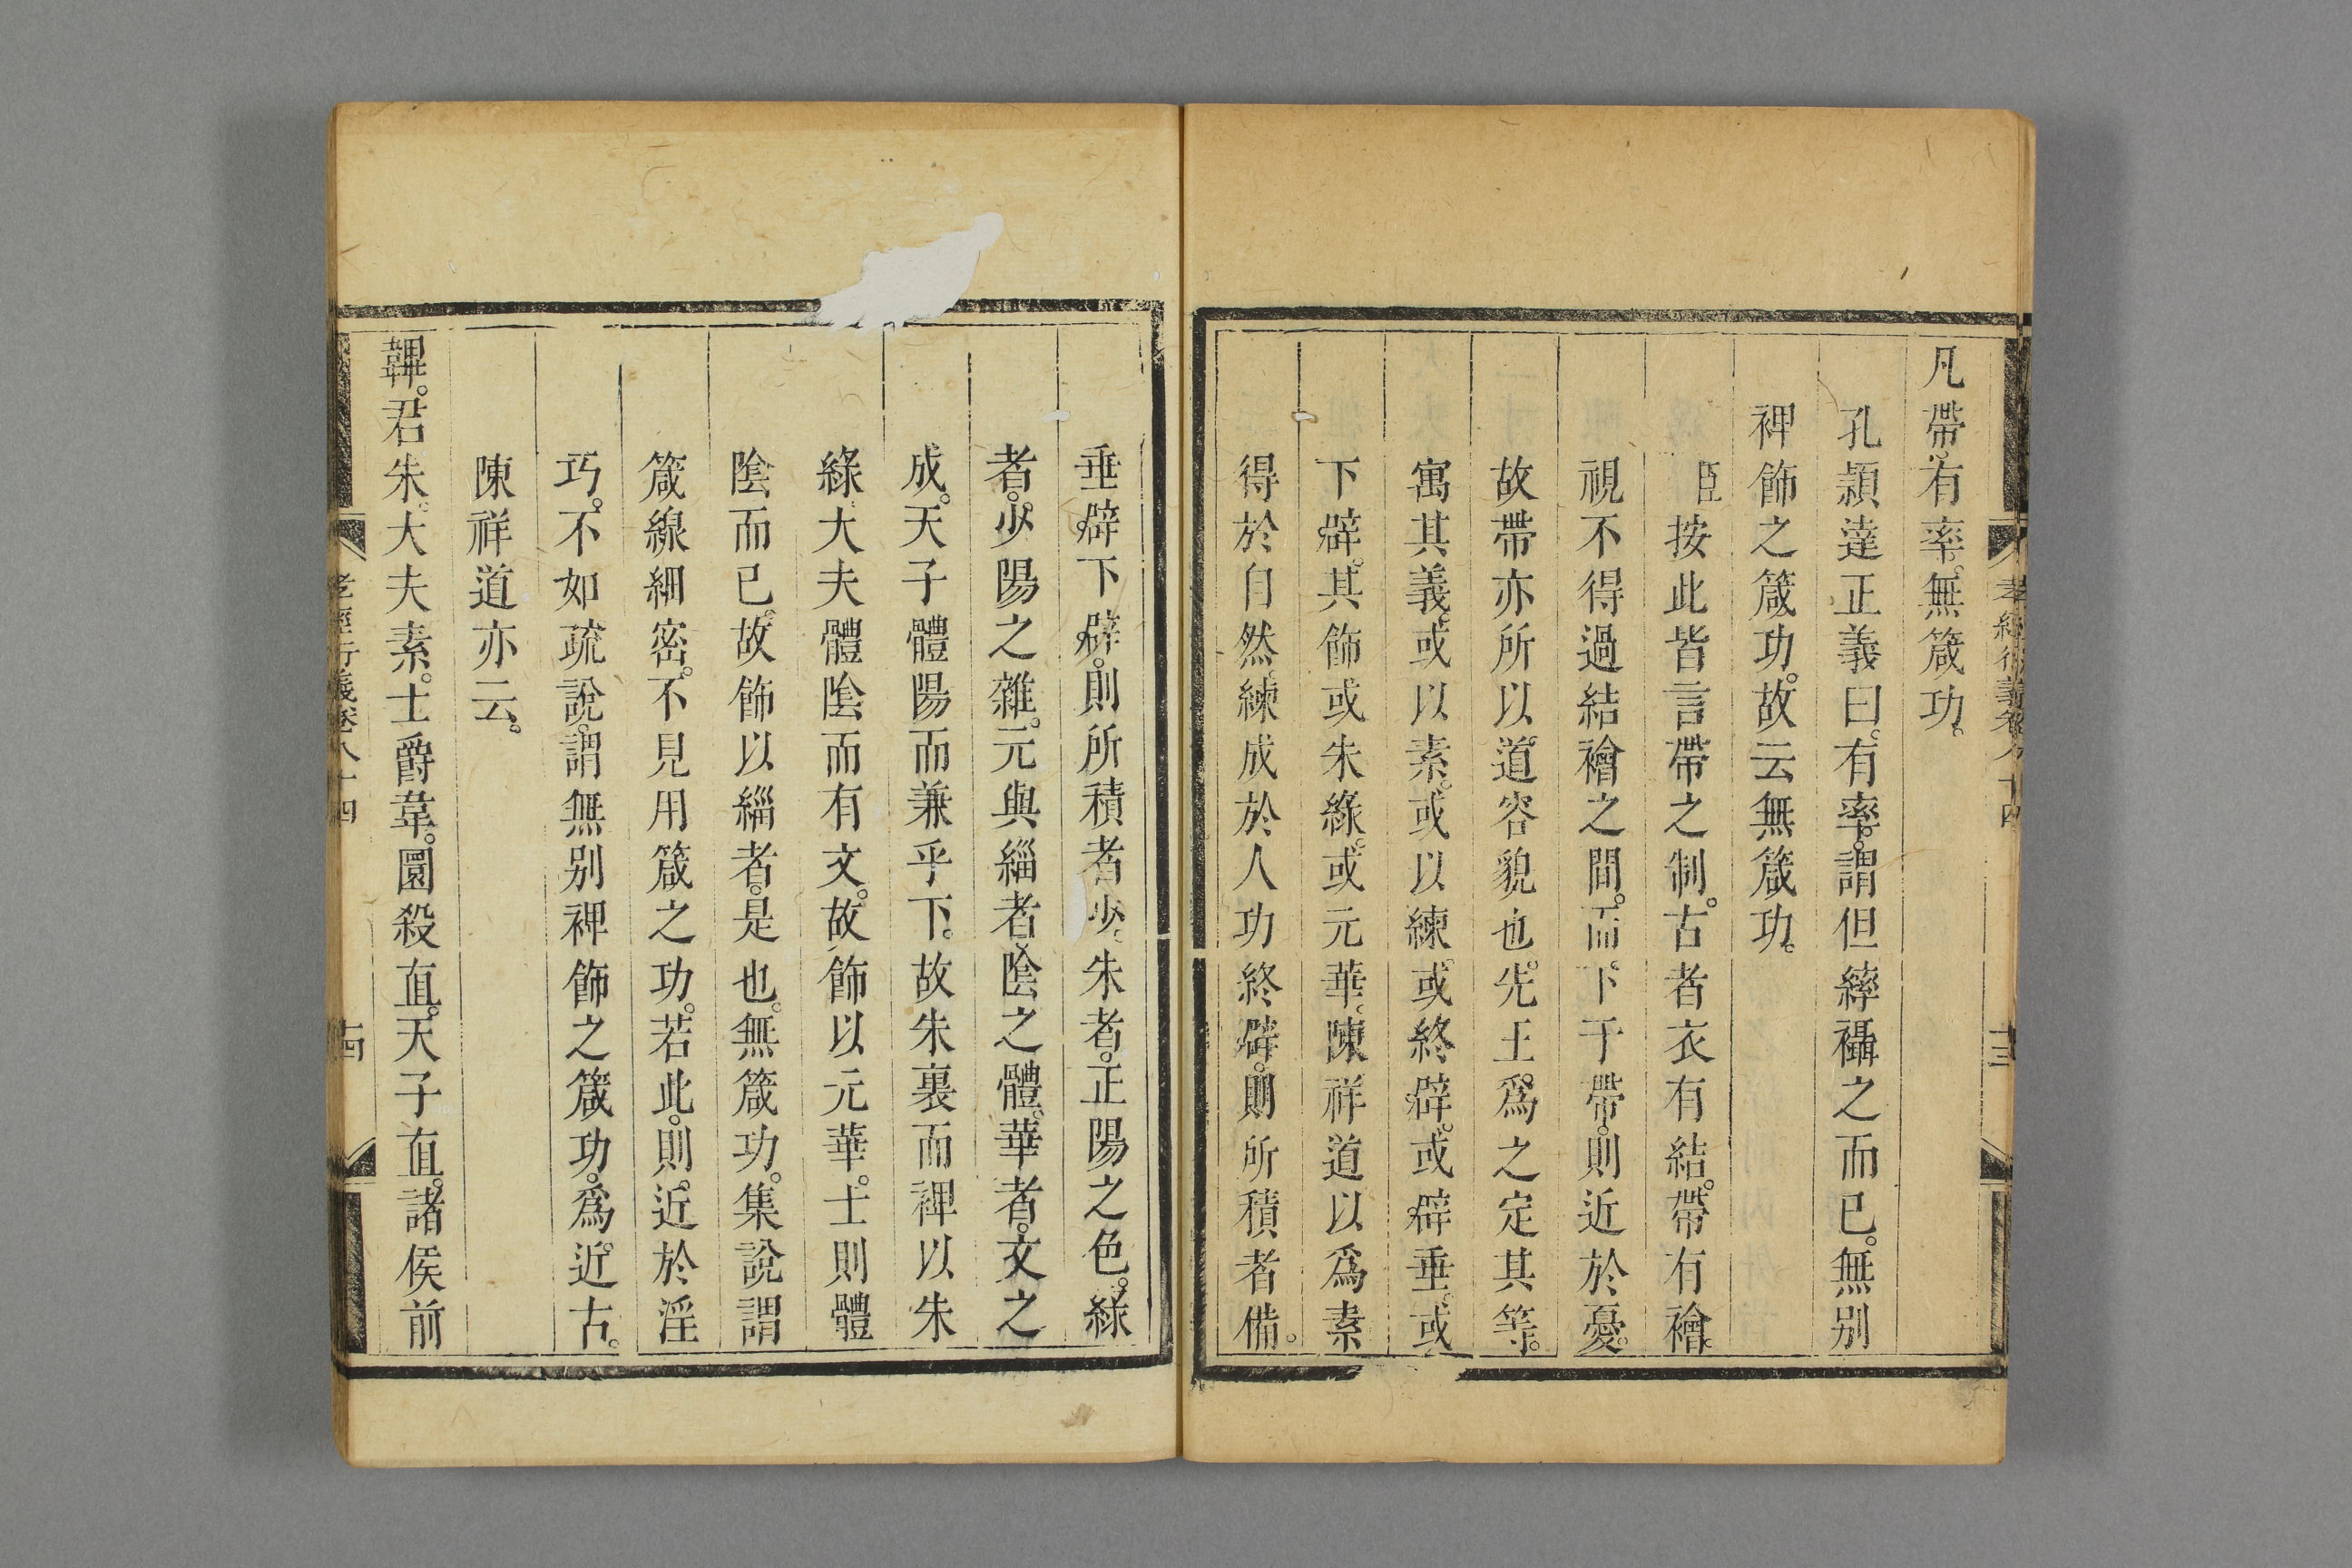 孝經衍義卷八十四 十三
凡帶有率。無箴功。
孔潁達正義曰。有率。謂但繂襵之而已。無别
裨飾之箴功。故云無箴功。
臣按此皆言帶之制。古者衣有結。帶有襘。
視不得過結襘之間。而下于帶。則近於憂。
故帶亦所以道容貌也。先王爲之定其等。
寓其義。或以素。或以練。或終辟。或辟垂。或
下辟。其飾或朱綠。或元華。陳祥道以爲素
得於自然。練成於人功。終辟。則所積者備。
垂辟下辟。則所積者少。朱者。正陽之色。綠
者。少陽之雜。元與緇者。陰之體。華者。文之
成。天子體陽而兼乎下。故朱裏而裨以朱
綠。大夫體陰而有文。故飾以元華。士則體
陰而已。故飾以緇者。是也。無箴功。集說謂
箴線細密。不見用箴之功。若此。則近於淫
巧。不如疏說。謂無别裨飾之箴功。爲近古。
陳祥道亦云。
韠。君朱。大夫素。士爵韋。圜殺直。天子直。諸侯前
孝經衍義卷八十四 十四